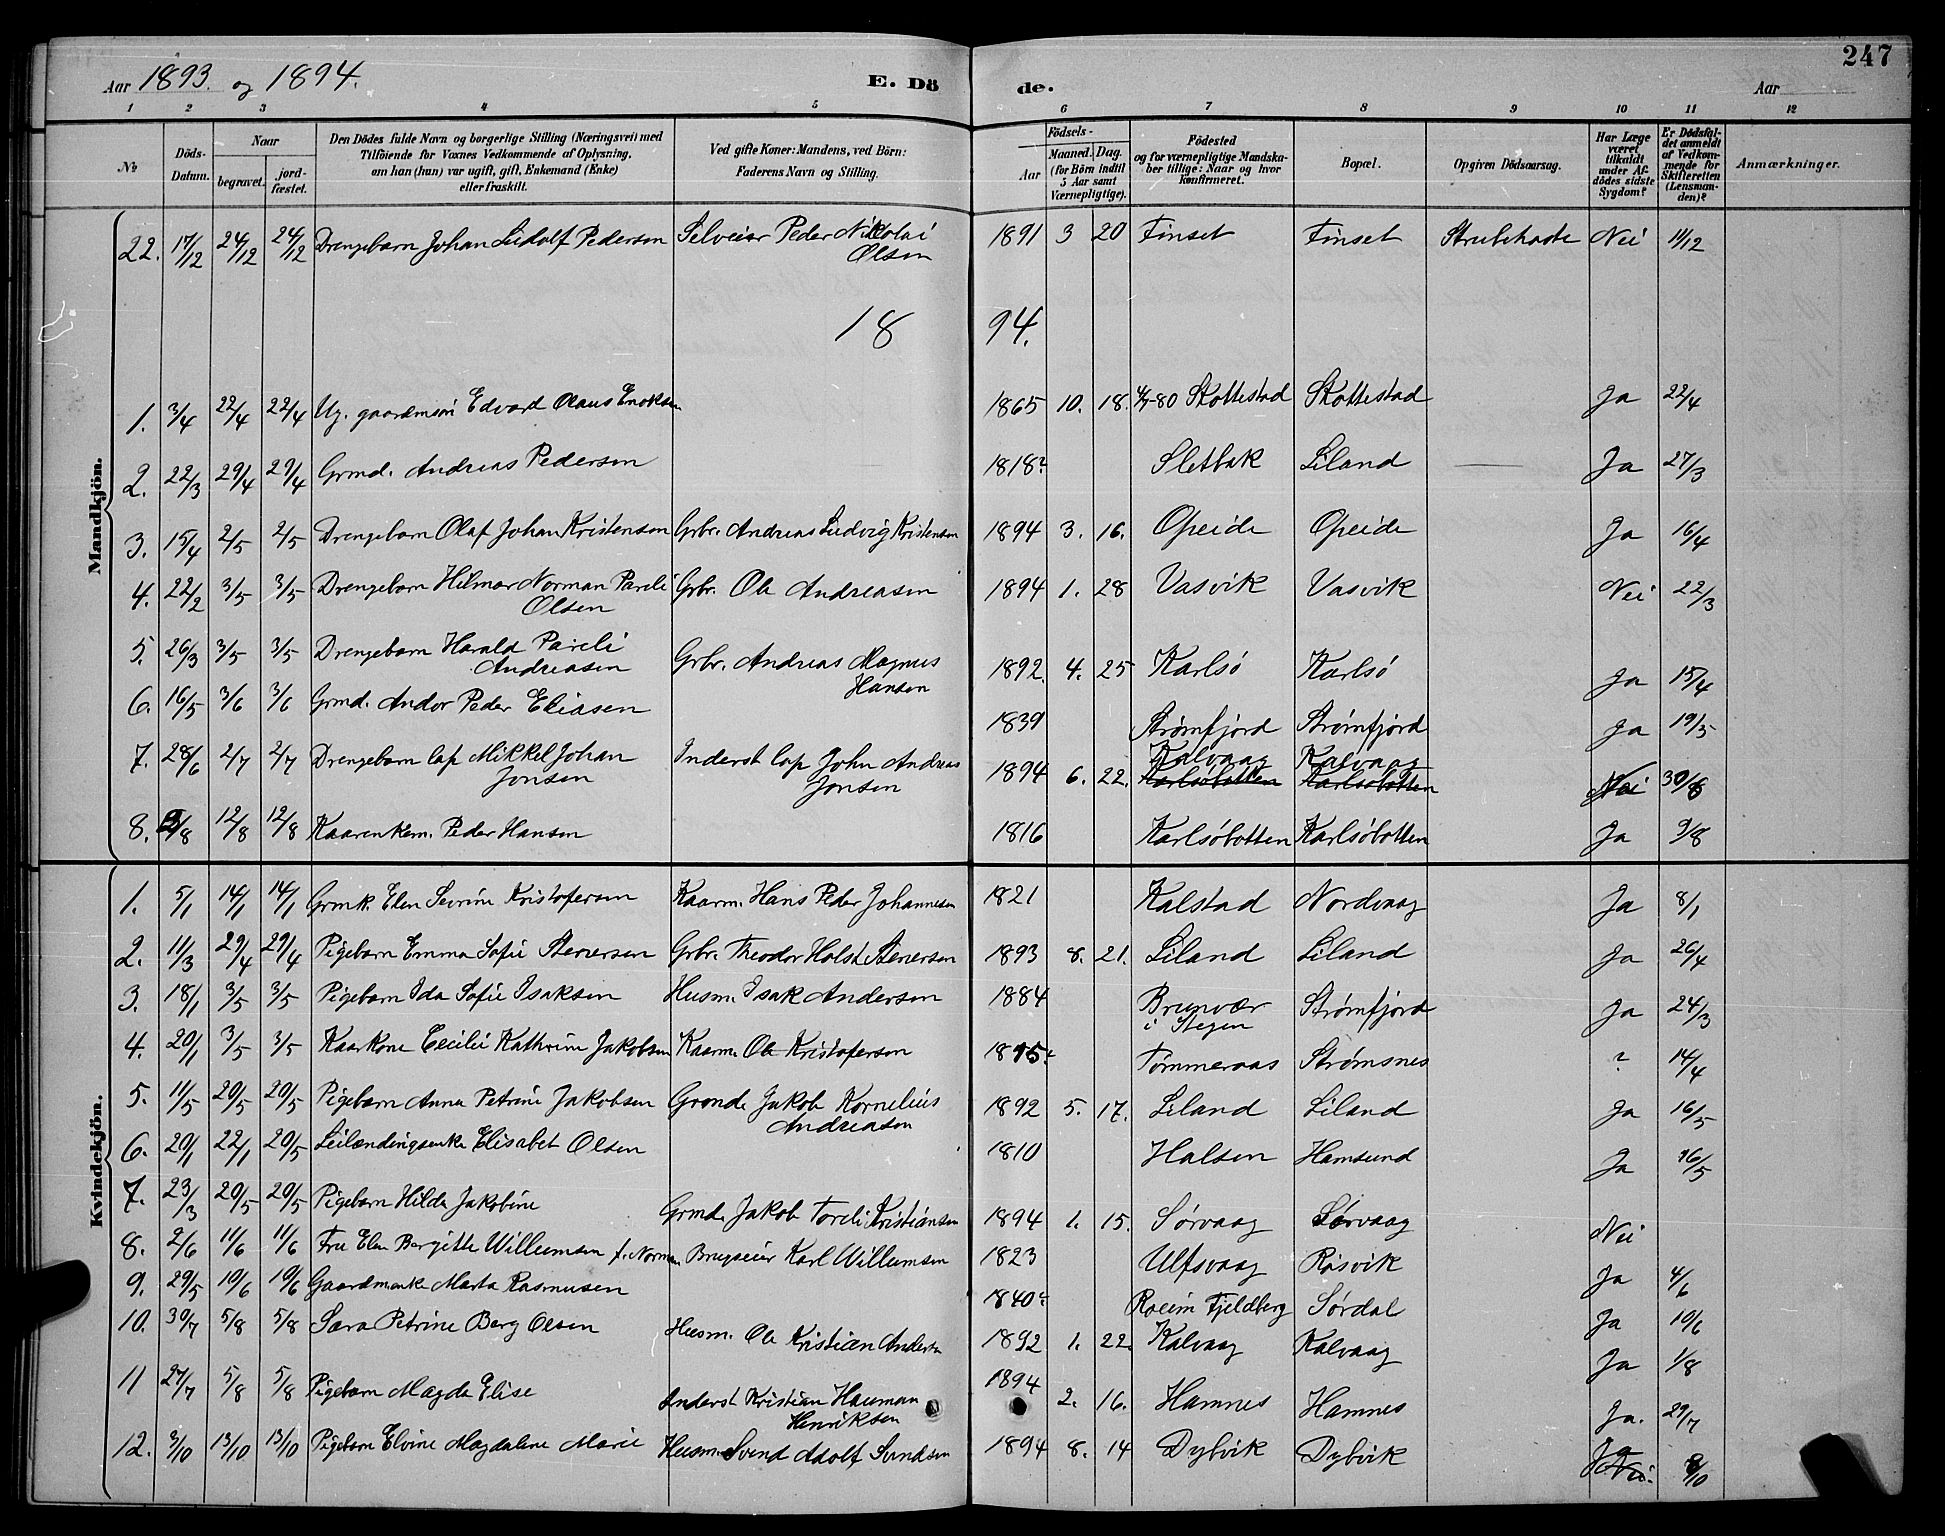 247
Aar 1893. og 1894. E. Dö de. Aar
1 2 3 4 5 6 7 8 9 10 11 12
№ Döds-Datum. Naar begravet. jord-fæstet. Den Dödes fulde Navn og borgerlige Stilling (Næringsvei) med Tilföiende for Voxnes Vedkommende af Oplysning, om han (hun) var ugift, gift, Enkemand (Enke) eller fraskilt. Ved gifte Koner: Mandens, ved Börn: Faderens Navn og Stilling. Födsels- Aar Maaned. Dag. (for Börn indtil 5 Aar samt Værnepligtige). Födested og for værnepligtige Mandskaber tillige: Naar og hvor Konfirmeret. Bopæl. Opgiven Dödsaarsag. Har Læge været tilkaldt under Afdödes sidste Sygdom? Er Dödsfaldet anmeldt af Vedkommende for Skifteretten (Lensmanden)? Anmærkninger.
Mandkjön.
22. 17/12 24/12 24/12 Drengebarn Johan Ludolf Pedersen Selveier Peder Nikolai Olsen 1891 3 20 Finset Finset Strubehoste Nei 11/12
1894.
1. 3/4 22/4 22/4 Ug. gaardmsøn Edvard Olaus Enoksen 1865 10. 18. -80 Skottestad Skottestad Ja 22/4
2. 22/3 29/4 29/4 Grmd. Andreas Pedersen 1818? Sletbak Liland — Ja 27/3
3. 15/4 2/5 2/5 Drengebarn Olaf Johan Kristensen Grbr. Andreas Ludvig Kristensen 1894 3. 16. Opeide Opeide Ja 16/4
4. 22/2 3/5 3/5 Drengebarn Hilmar Norman Pareli Olsen Grbr. Ole Andreasen 1894 1. 28 Vasvik Vasvik Nei 22/3
5. 26/3 3/5 3/5 Drengebarn Harald Pareli Andreasen Grbr. Andreas Magnus Hansen 1892 4. 25 Karlsø Karlsø Ja 15/4
6. 16/5 3/6 3/6 Grmd. Andor Peder Eliasen 1839 Strømfjord Strømfjord Ja 19/5
7. 28/6 2/7 2/7 Drengebarn lap Mikkel Johan Jonsen Inderst lap John Andreas Jonsen 1894 6. 22. Kalvaag Karlsøbotten Kalvaag Karlsøbotten Nei 30/6
8. 3/8 12/8 12/8 Kaarenkem. Peder Hansen 1816 Karlsøbotten Karlsøbotten Ja 9/8
Kvindekjön.
1. 5/1 14/1 14/1 Grmk. Elen Sevrine Kristofersen Kaarm. Hans Peder Johannesen 1821 Kalstad Nordvaag Ja 8/1
2. 11/3 29/4 29/4 Pigebarn Emma Sofie Stenersen Grbr. Theodor Holst Stenersen 1893 8. 21. Liland Liland Ja 26/4
3. 18/1 3/5 3/5 Pigebarn Ida Sofie Isaksen Husm. Isak Andersen 1884 Brunvær i Stegen Strømfjord Ja 24/3
4. 20/1 3/5 3/5 Kaarkone Cecilie Kathrine Jakobsen Kaarm. Ole Kristofersen 1815? Tømmeraas Strømsnes ? 14/4
5. 11/5 20/5 20/5 Pigebarn Anna Petrine Jakobsen Grmd. Jakob Kornelius Andreasen 1892 5. 17. Liland Liland Ja 16/5
6. 20/1 22/1 20/5 Leilændingsenke Elisabet Olsen 1810 Halsen Hamsund Ja 16/5
7. 23/3 20/5 20/5 Pigebarn Hilda Jakobine Grmd. Jakob Toreli Kristiansen 1894 1. 15. Sørvaag Sørvaag Nei
8. 2/6 11/6 11/6 Fru Elen Bergitte Willumsen f. Norman Brugseier Karl Willumsen 1823 Ulfsvaag Røsvik Ja 4/6
9. 29/5 10/6 10/6 Gaardmenke Marta Rasmusen 1840? Fjeldberg Sørdal Ja 10/6
10. 30/7 5/8 5/8 Sara Petrine Berg Olsen Husm. Ole Kristian Andersen 1892 1. 22. Kalvaag Kalvaag Ja 1/8
11 27/7 5/8 5/8 Pigebarn Magda Elise Inderst Kristian Hauman Henriksen 1894 2. 16. Hamnes Hamnes Ja. 29/7
12. 3/10 13/10 13/10 Pigebarn Elvine Magdalene Marie Husm. Svend Adolf Svendsen 1894 8. 14 Dybvik Dybvik Ja Nei. 8/10